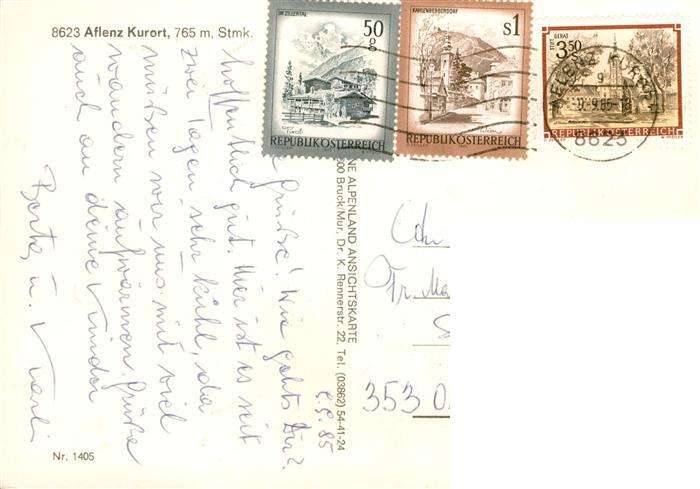 8623 Aflenz Kurort, 765 m, Stmk.
IM ZILLERTAL
50
g
REPUBLIK ÖSTERREICH
KAHLENBERGERDORF
s1
REPUBLIK ÖSTERREICH
STIFT GERAS
3.50
REPUBLIK ÖSTERREICH
8623
8.9.85
Grüße! Wie gehts Dir?
hoffentlich gut. Hier ist es seit
zwei Tagen sehr kühl, da
müßen wir uns mit viel
wandern aufwärmen. Grüße
auch an deine Kinder
Berta u. Karli
NE ALPENLAND ANSICHTSKARTE
00 Bruck/Mur, Dr. K. Rennerstr. 22, Tel. (03862) 54-41-24
An
Fr. Ma
353
Nr. 1405